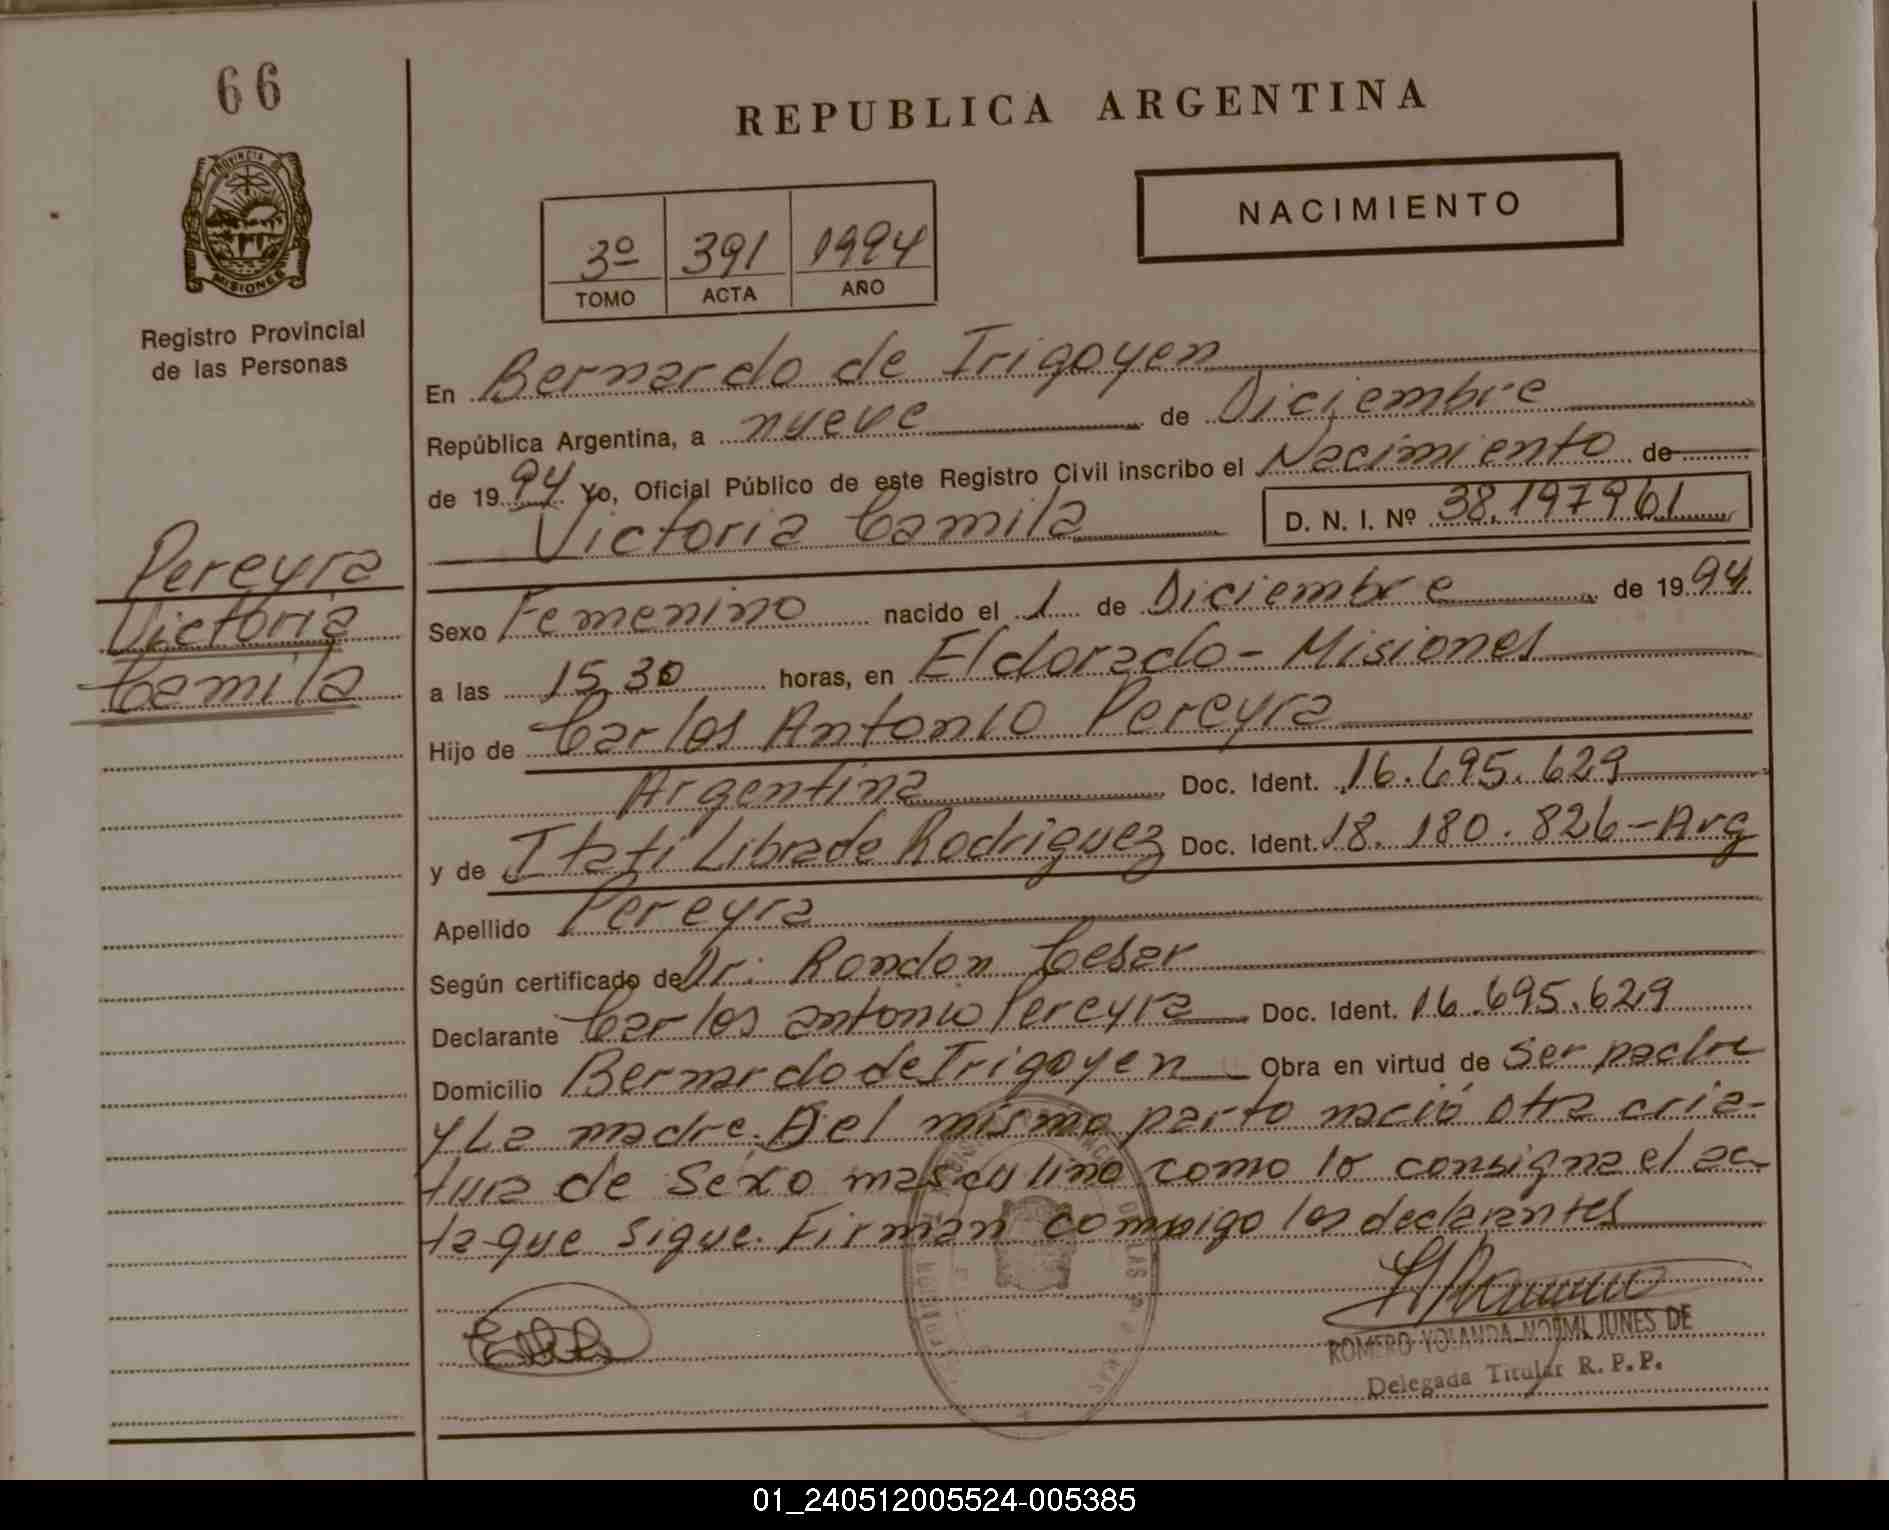 66
PROVINCIA DE
MISIONES
Registro Provincial
de las Personas
REPUBLICA ARGENTINA
NACIMIENTO
3º 391 1994
TOMO ACTA AÑO
En Bernardo de Irigoyen
República Argentina, a nueve de Diciembre
de 1994 Yo, Oficial Público de este Registro Civil inscribo el Nacimiento de
Victoria Camila D. N. I. Nº 38.197961
Pereyra
Victoria
Camila
Sexo Femenino nacido el 1 de Diciembre de 1994
a las 15,30 horas, en Eldorado - Misiones
Hijo de Carlos Antonio Pereyra
Argentina Doc. Ident. 16.695.629
y de Itati Librada Rodriguez Doc. Ident. 18.180.826-Arg
Apellido Pereyra
Según certificado de Dr. Rondon Cesar
Declarante Carlos antonio Pereyra Doc. Ident. 16.695.629
Domicilio Bernardo de Irigoyen Obra en virtud de ser padre
y La madre. Del mismo parto nació otra cria-
tura de sexo masculino como lo consigna el ac-
ta que sigue. Firman conmigo los declarantes
ROMERO YOLANDA NORMI JUNES DE
Delegada Titular R. P. P.
01_240512005524-005385